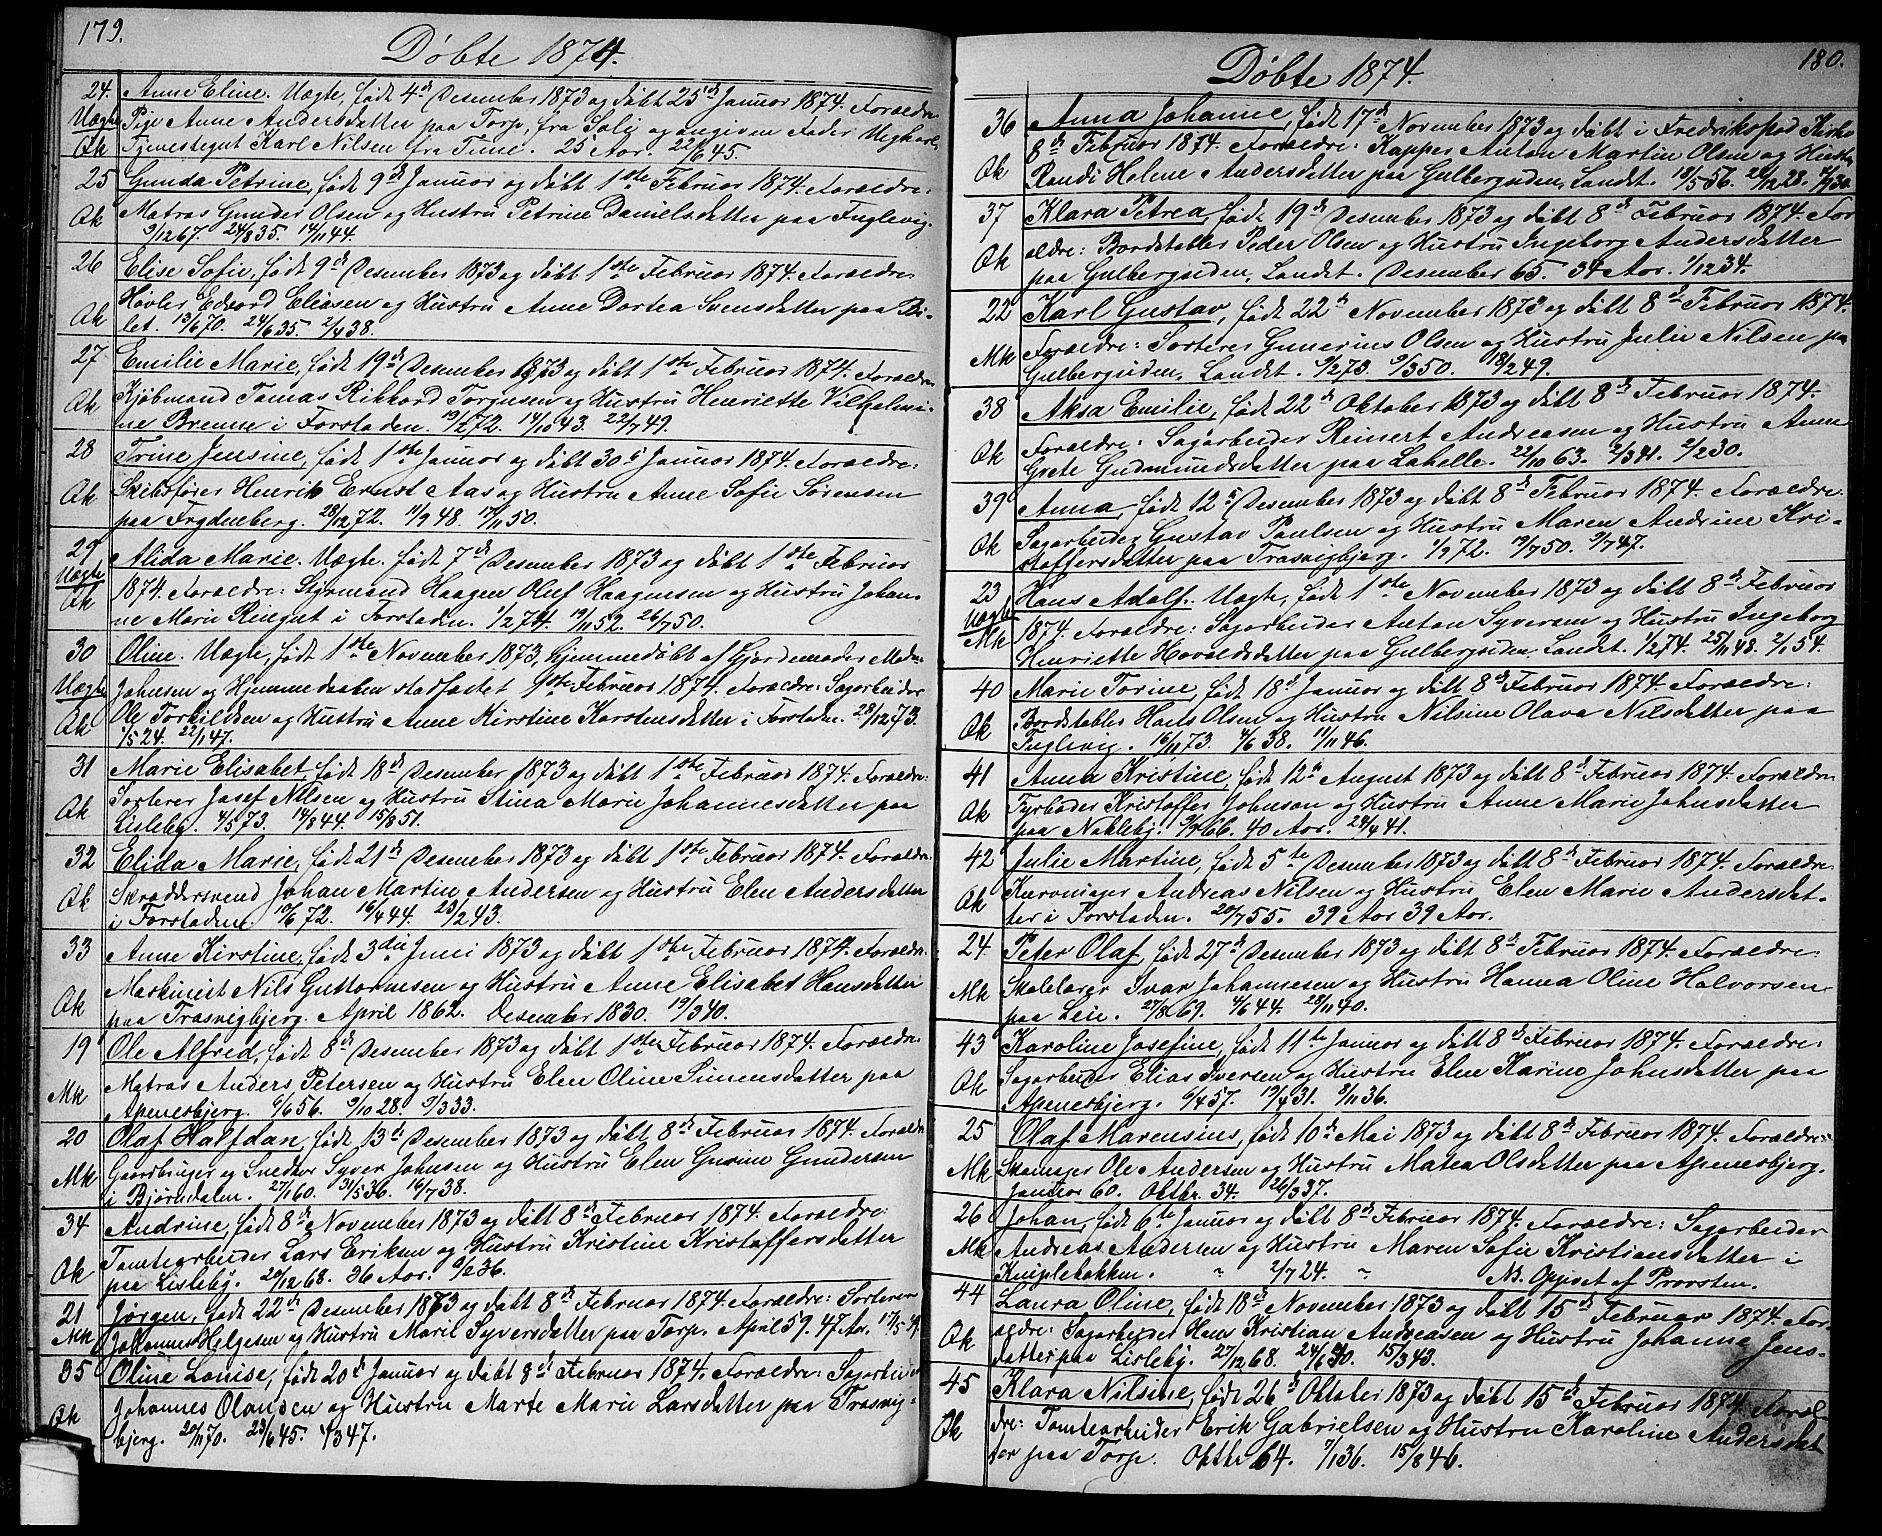 179.
Døbte 1874.
24. Anne Eline. Uægte, født 4de Desember 1873 og døbt 25de Januar 1874. Foræeldre:
Uægte Pige Anne Andersdatter paa Torp, fra Solig og angiven Fader Ungkarl
Qk Tjenestegut Karl Nilsen fra Tune. 25 Aar. 22/6 45.
25 Gunda Petrine, født 9de Januar og døbt 1ste Februar 1874. Foræeldre:
Qk Matros Gunder Olsen og Hustru Petrine Danielsdatter paa Fuglevig.
9/12 67. 24/8 35. 14/1 44.
26 Elise Sofie, født 9de Desember 1873 og døbt 1ste Februar 1874. Foræeldre
Høvler Edvard Eliasen og Hustru Anne Dortea Svensdatter paa Bi-
Qk let. 13/6 70. 24/6 35. 2/4 38.
27 Emilie Marie, født 19de Desember 1873 og døbt 1ste Februar 1874. Foræeldre
Qk Kjøbmand Tomas Rikkard Torgusen og Hustru Henriette Vilhelmi-
ne Brenne i Forstaden. 19/2 72. 14/10 43. 22/7 49.
28 Trine Jensine, født 1ste Januar og døbt 30te Januar 1874. Foræeldre:
Qk Skibsfører Henrik Ernst Aas og Hustru Anne Sofie Sørensen
paa Frydenberg. 28/12 72. 11/9 48. 17/11 50.
29 Alida Marie. Uægte. født 7de Desember 1873 og døbt 1ste Februar
Uægte
Qk 1874. Foræeldre: Styrmand Haagen Oluf Haagensen og Hustru Johan-
ne Marie Ringut i Forstaden. 1/2 74. 19/11 52. 26/7 50.
30 Oline. Uægte, født 1ste November 1873, hjemmedøbt af Gjordemoder
Uægte Johnsen og Hjemmedaaben stadfæstet 1ste Februar 1874. Foræeldre: Sagarbeider
Qk Ole Torkildsen og Hustru Anne Kirstine Karstensdatter i Forstaden. 28/12 73.
1/5 24. 22/1 47.
31 Marie Elisabet, født 18de Desember 1873 og døbt 1ste Februar 1874. Foræeldre:
Qk Sorterer Josef Nilsen og Hustru Stina Marie Johannesdatter paa
Lisleby. 4/5 73. 14/8 44. 15/8 51.
32 Elida Marie, født 21de Desember 1873 og døbt 1ste Februar 1874. Foræeldre:
Qk Skræddersvend Johan Martin Andersen og Hustru Elen Andersdatter
i Forstaden 10/6 72. 16/4 44. 23/2 43.
33 Anne Kirstine, født 3die Juni 1873 og døbt 1ste Februar 1874. Foræeldre
Qk Maskinist Nils Guttormsen og Hustru Anne Elisabet Hansdatter
paa Trasvigbjerg. April 1862. Desember 1830. 19/3 40.
19 Ole Alfred, født 8de Desember 1873 og døbt 1ste Februar 1874. Foræeldre:
Mk Matros Anders Petersen og Hustru Elen Oline Simensdatter paa
Apenesbjerg. 6/6 56. 9/10 28. 9/3 33.
20 Olaf Halfdan, født 13de Desember 1873 og døbt 8de Februar 1874. Foræeldre
Mk Gaardbruger og Snedker Syver Johnsen og Hustru Elen Gurine Gundersen
i Bjørndalen. 27/1 60. 31/5 36. 16/7 38.
34 Andrine, født 8de November 1873 og døbt 8de Februar 1874. Foræeldre:
Qk Tomtearbeider Lars Eriksen og Hustru Kristine Kristoffersdatter
paa Lisleby. 20/12 68. 36 Aar. 9/2 36.
21 Jørgen, født 22de Desember 1873 og døbt 8de Februar 1874. Foræeldre: Sorterer
Mk Johannes Helgesen og Hustru Maril Syversdatter paa Torp. April 59. 47 Aar.
35 Oline Louise, født 20de Januar og døbt 8de Februar 1874. Foræeldre: Sagarbeider
Qk Johannes Olaussen og Hustru Marte Marie Larsdatter paa Trasvig-
bjerg. 20/11 70. 23/6 45. 4/3 47.
180.
Døbte 1874.
36 Anna Johanne, født 17de November 1873 og døbt i Fredrikstad Kirke
8de Februar 1874. Foræeldre: Kapper Anton Martin Olsen og Hustru
Qk Randi Helene Andersdatter paa Gulbergsiden, Landet. 18/5 56. 28/12 28.
37 Klara Petrea, født 19de Desember 1873 og døbt 8de Februar 1874. For-
Qk ældre: Bordstabler Peder Olsen og Hustru Ingeborg Andersdatter
paa Gulbergsiden, Landet. Desember 65. 34 Aar. 1/12 34.
22 Karl Gustav, født 22de November 1873 og døbt 8de Februar 1874.
Mk Foræeldre: Sorterer Gunerius Olsen og Hustru Julie Nilsen paa
Gulbergsiden, Landet. 9/2 73. 9/3 50. 18/2 49.
38 Aksa Emilie, født 22de Oktober 1873 og døbt 8de Februar 1874.
Qk Foræeldre: Sagarbeider Reinert Andreasen og Hustru Anne
Grete Gudmundsdatter paa Lahelle. 22/10 63. 2/3 41. 2/2 30.
39 Anna, født 12te Desember 1873 og døbt 8de Februar 1874. Foræeldre:
Qk Sagarbeider Gustav Paulsen og Hustru Maren Andrine Kri-
stoffersdatter paa Trasvigbjerg. 1/9 72. 19/7 50. 9/7 47.
23 Hans Adolf. Uægte, født 1ste November 1873 og døbt 8de Februar
Uægte
Mk 1874. Foræeldre: Sagarbeider Anton Syversen og Hustru Ingeborg
Henriette Haraldsdatter paa Gulbergsiden, Landet. 1/2 74. 25/11 48. 2/1 54.
40 Marie Torine, født 18de Januar og døbt 8de Februar 1874. Foræeldre:
Qk Bordstabler Hans Olsen og Hustru Nilsine Olava Nilsdatter paa
Fuglevig. 16/11 73. 4/6 38. 11/11 46.
41 Anna Kristine, født 12te August 1873 og døbt 8de Februar 1874. Foræeldre
Qk Fyrbøder Kristoffer Johnson og Hustru Anne Marie Johnsdatter
paa Nablebj. 3/9 66. 40 Aar. 24/4 41.
42 Julie Martine, født 5te Desember 1873 og døbt 8de Februar 1874. Foræeldre
Qk Kurvmager Andreas Nilsen og Hustru Elen Marie Andersdat-
ter i Forstaden. 20/7 55. 39 Aar 39 Aar.
24. Peter Olaf, født 27de Desember 1873 og døbt 8de Februar 1874. Foræeldre
Mk Skolelærer Ivar Johannesen og Hustru Hanna Oline Halvorsen
paa Leie. 27/8 69. 4/6 44. 28/11 40.
43 Karoline Josefine, født 11te Januar og døbt 8de Februar 1874. Foræeldre:
Qk Sagarbeider Elias Iversen og Hustru Elen Karine Johnsdatter paa
Apenesbjerg. 6/4 57. 19/4 31. 8/11 36.
25 Olaf Marensius, født 10de Mai 1873 og døbt 8de Februar 1874. Foræeldre:
Mk Skomager Ole Andersen og Hustru Matea Olsdatter paa Apenesbjerg.
Januar 60. Oktbr. 34. 26/3 37.
26 Johan, født 6te Januar og døbt 8de Februar 1874. Foræeldre: Sagarbeider
Mk Andreas Andersen og Hustru Maren Sofie Kristiansdatter i
Kniplebakken. " 2/7 24. " NB. Opgivet af Provsten.
44 Laura Oline, født 18de November 1873 og døbt 15de Februar 1874. For-
Qk ældre: Sagarbeider Hans Kristian Andreasen og Hustru Johanne Jens-
datter paa Lisleby. 27/12 68. 24/6 40. 15/3 43.
45 Klara Nilsine, født 26de Oktober 1873 og døbt 15de Februar 1874. Foræl-
Qk dre: Tomtearbeider Erik Gabrielsen og Hustru Karoline Andersdat
ter paa Torp. Oktbr 64. 7/1 36. 15/8 46.